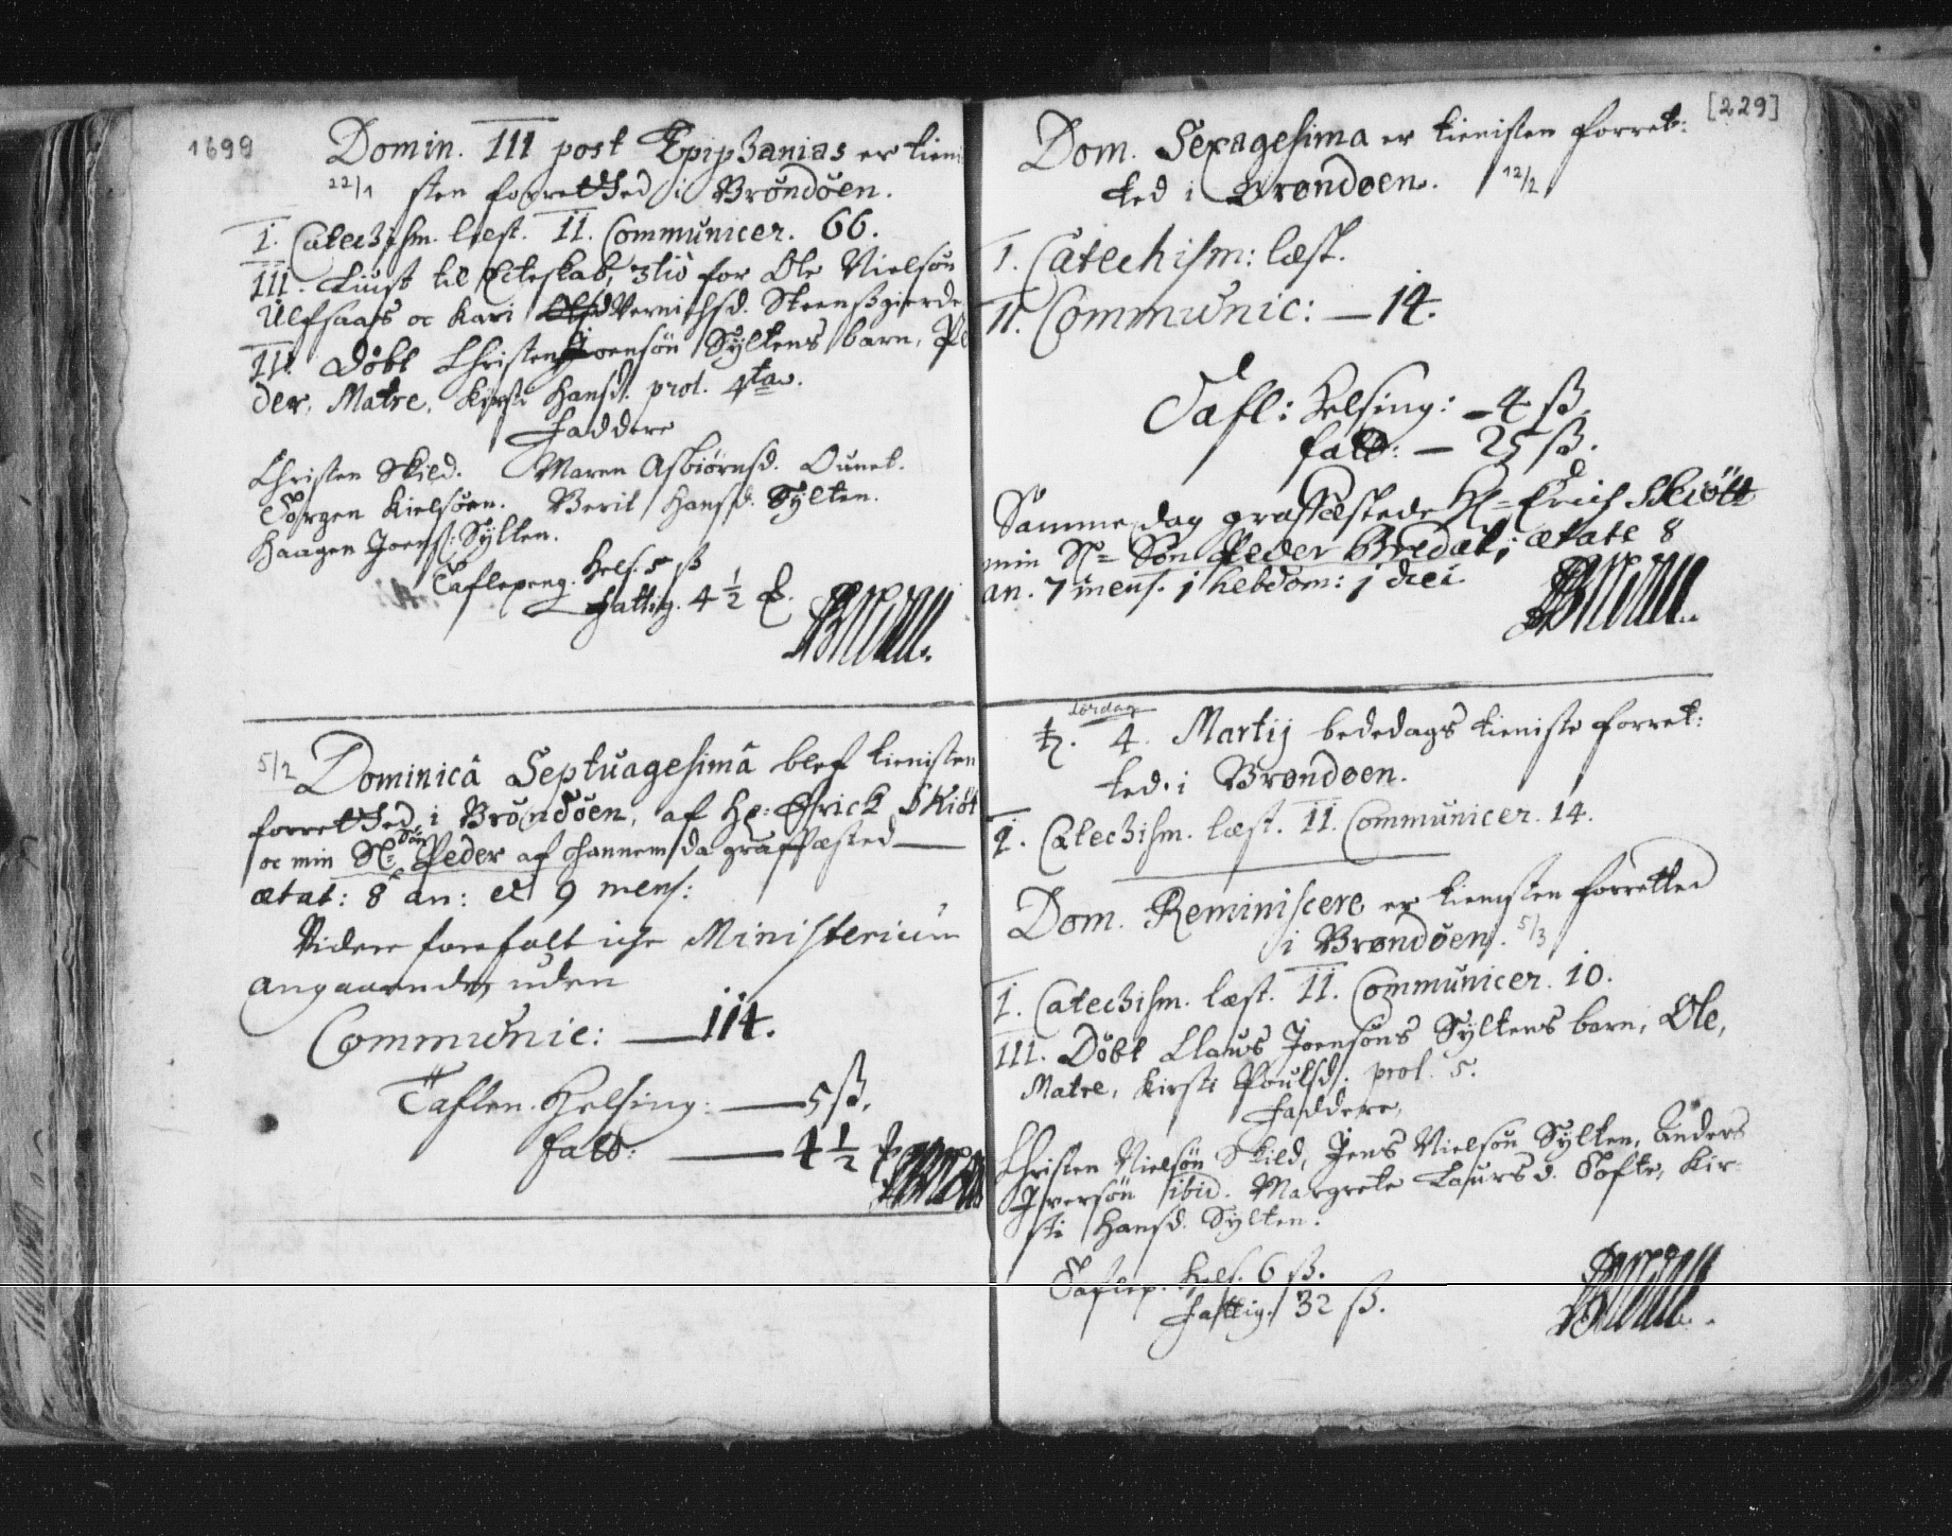 1699
Domin. III post Epiphanias er tieni
22/1 sten forretted i Brøndøen.
I. Catechism. læst. II. Communicer. 66.
III. Liust til Ecteskab, 3tiò for Ole Nielsøn
Ulfsaas oc Kari Bernthsd. Steensgierde
IIII. Døbt Christen Joensøn Syltens barn, Pe
der, Matre, Kirsti Hansd. prol. 4ta.
Faddere
Christen Skild. Maren Asbiørnsd. Ounet.
Jørgen Kielsøen. Berit Hansd. Sylten.
Haagen Joens: Sylten.
Taflepeng. Hels. 5 ß
Fattig. 4 1/2
5/2 Dominicâ Septuagesimâ blef tienisten
forretted i Brøndøen, af Hr: Erick Skiøt
oc min Sl. Søn Peder af hannem da graffæsted
ætat: 8 an: et 9 mens:
Videre forefalt iche Ministerium
angaaende uden
Communic: — 114.
Taflen. Helsing: — 5 ß.
fatt: — 4 1/2
[229]
Dom. Sexagesima er tienisten forret:
ted i Brøndøen. 12/2
I. Catechism: læst.
II. Communic: — 14.
Tafl: Helsing: — 4 ß.
fatt: — 25 ß.
Samme dag graffæstede Hr. Erich Skiøtt
min Sl. Søn Peder Bredal; ætate 8
an. 7 mens. 1 hebdom: 1 diei
lørdag
♄. 4. Martij bededags tieniste forret:
ted. i Brøndøen.
I. Catechism. læst. II. Communicer. 14.
Dom. Reminiscere er tienisten forretted
i Brøndøen. 5/3
I. Catechism. læst. II. Communicer. 10.
III. Døbt Claus Joensøns Syltens barn, Ole,
Matre, Kirsti Poulsd: prol. 5.
Faddere,
Christen Nielsøn Skild, Jens Nielsøn Sylten, Anders
Iversøn ibid. Margrete Laursd. Tofte, Kir-
sti Hansd. Sylten.
Taflep. Hels. 6 ß.
Fattig. 32 ß.